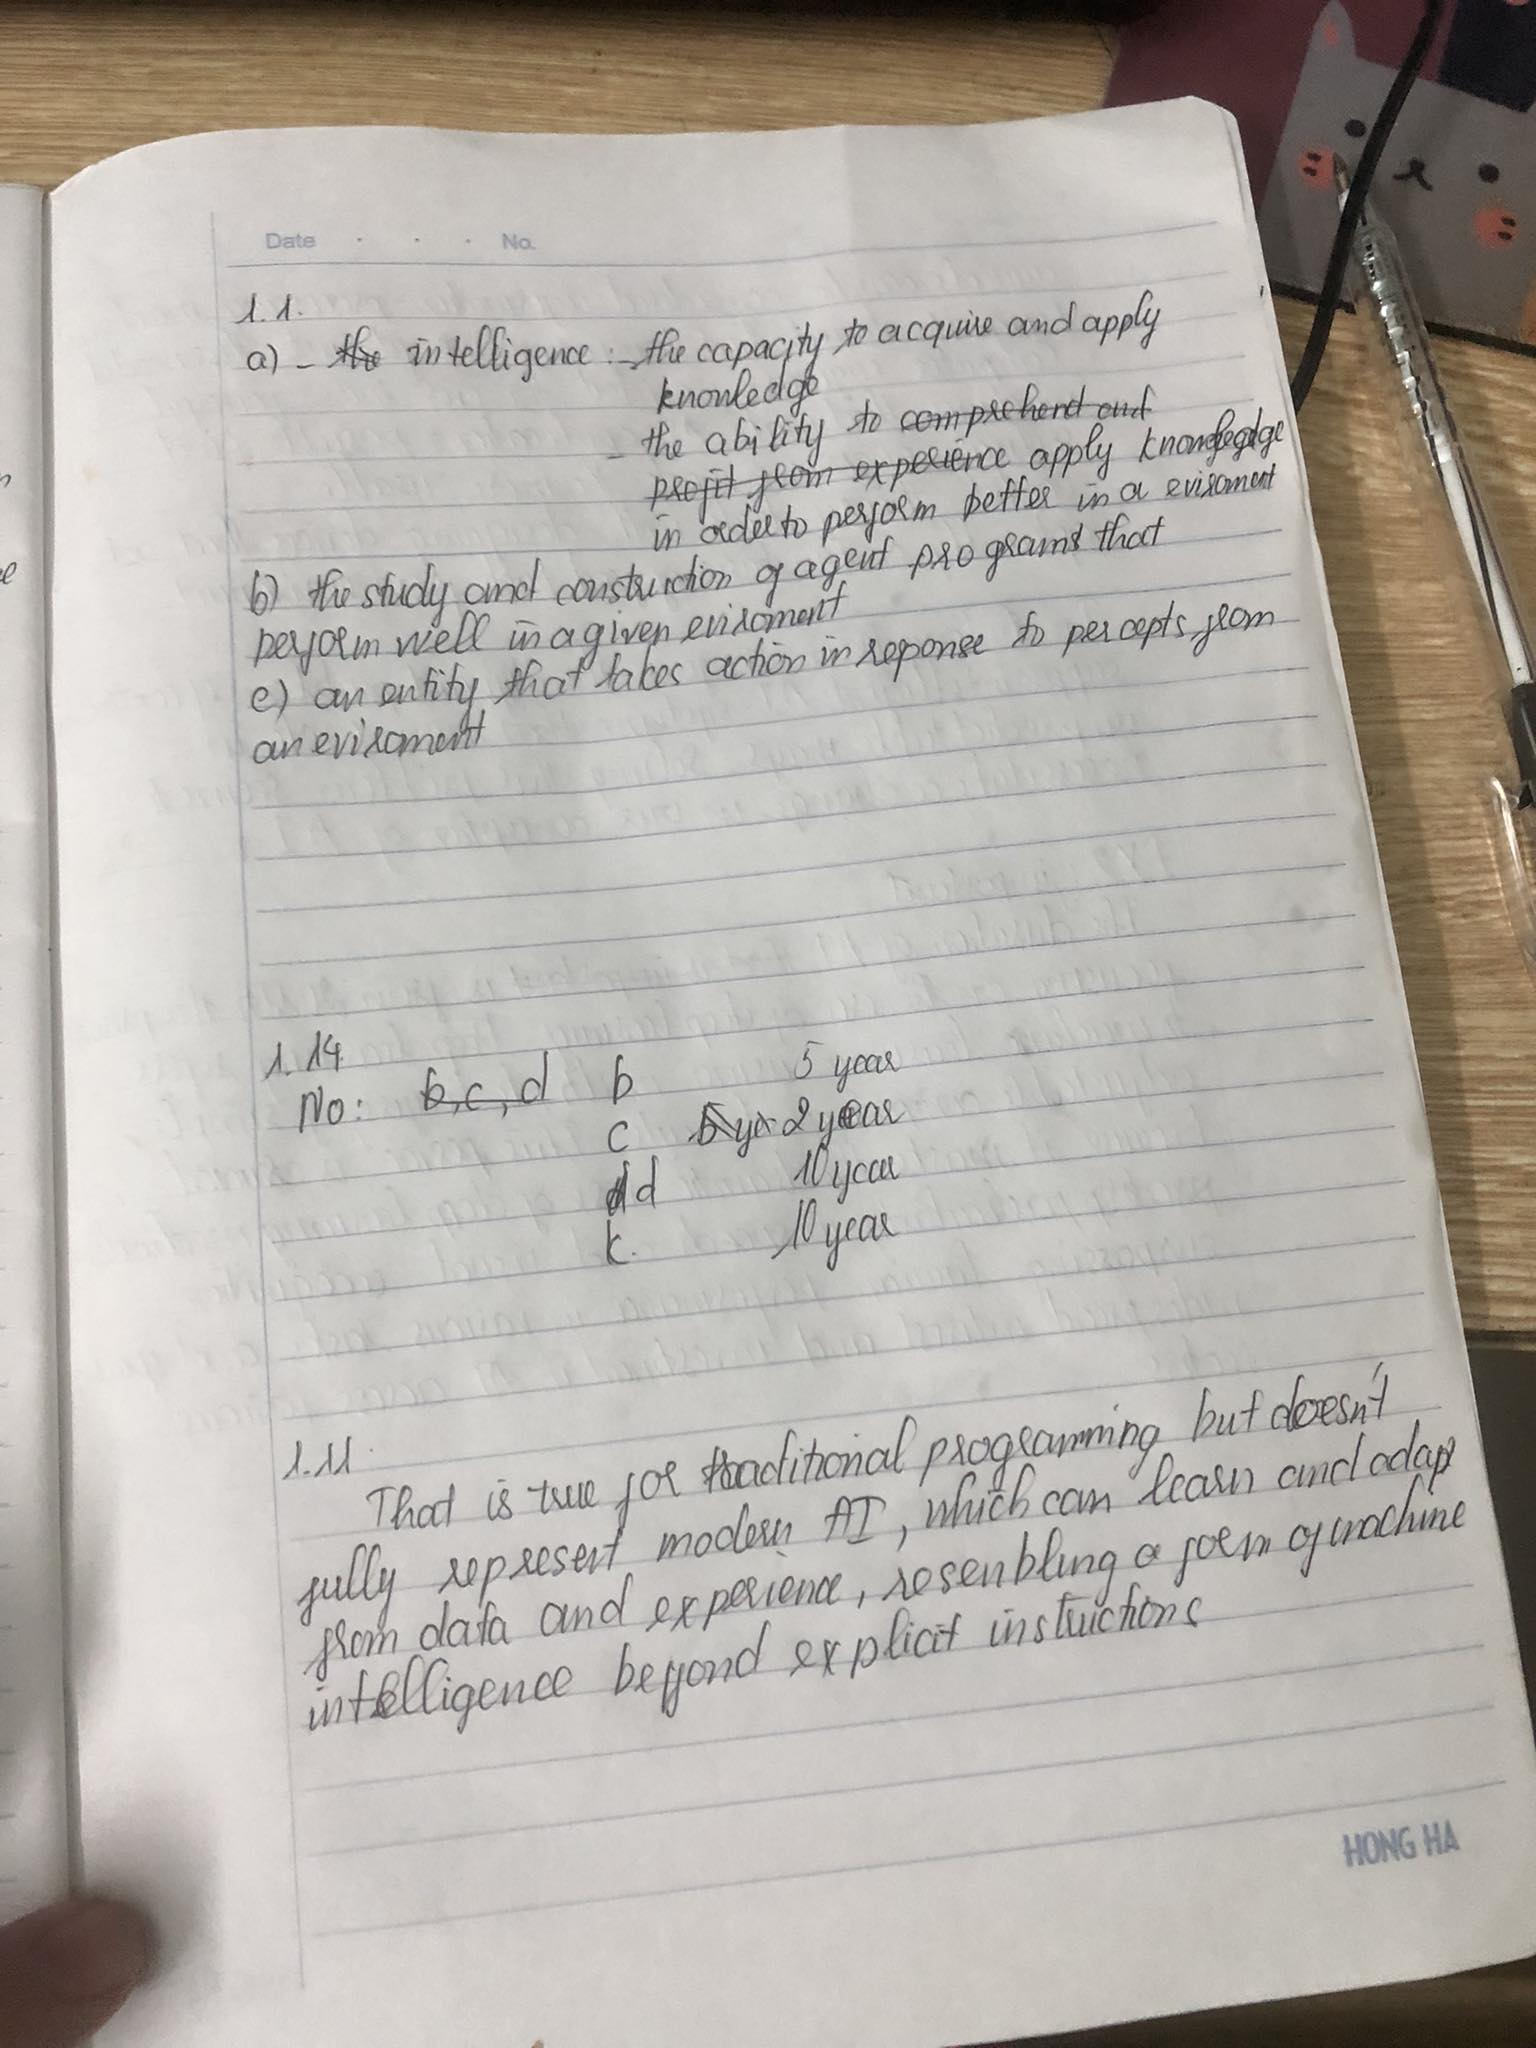 Date . . . No.
1.1.
a) - the intelligence : - the capacity to acquire and apply
knowledge
- the ability to comprehend and
profit from experience apply knowledgdge
in order to perform better in a evironment
b) the study and construction of agent programs that
perform well in a given evironment
c) an entity that takes action in reponse to percepts from
an evironment
1.14
No: b, c, d b 5 year
c 5 ye 2 year
d d 10 year
k. 10 year
1.11.
That is true for traditional programming but doesn't
fully represent modern AI, which can learn and adapt
from data and experience, resenbling a form of machine
intelligence beyond explicit instructions
HONG HA